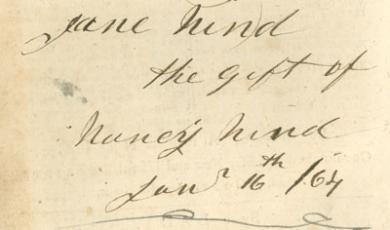 Jane Hind
the gift of
Nancy Hind
Janr 16th /64